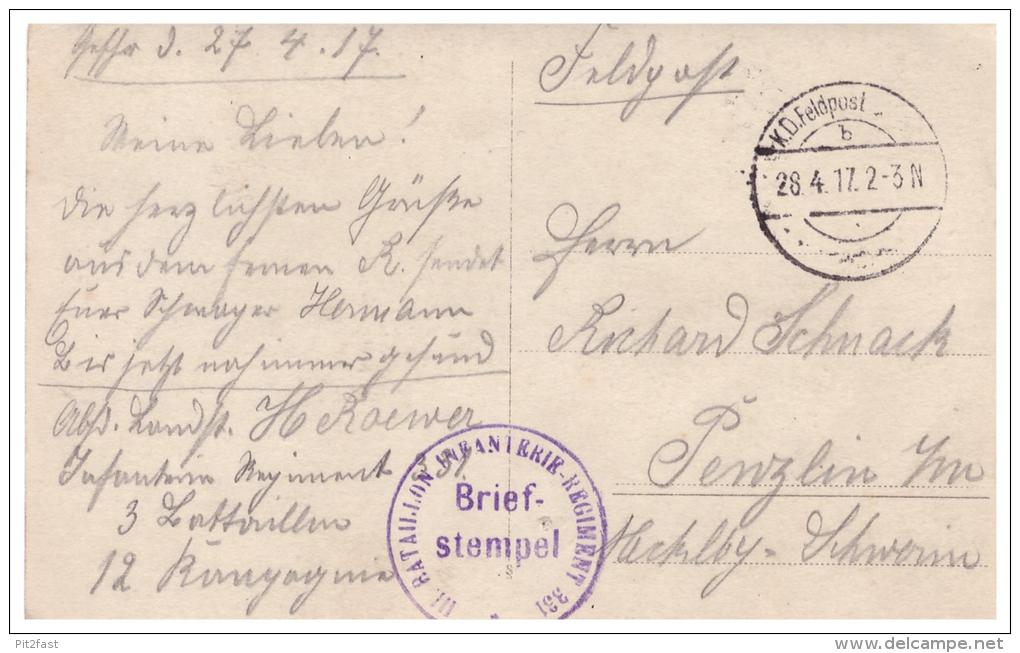 d. 27.4.17.
Meine Lieben!
Die herzlichsten Grüße
aus dem fernen R. sendet
Euer Schwager Hermann
Bis jetzt noch immer gesund
Abs. Landst. H Roewer
Infanterie Regiment 331
3 Battaillon
12 Kompagnie
Feldpost
K.D.Feldpost
b
28.4.17. 2-3 N
Herrn
Richard Schnack
Penzlin i/m
Mecklbg-Schwerin
III. BATAILLON INFANTERIE-REGIMENT 331
Brief-
stempel
Pit2fast
www.delcampe.net